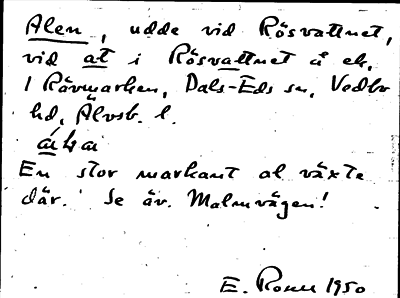 Alen, udde vid Rösvattnet,
vid at i Rösvattnet å ek.
I Rävmarken, Dals-Eds sn, Vedbo
hd, Älvsb. l.
En stor markant al växte
där. Se äv. Malmvägen!
E. 1950